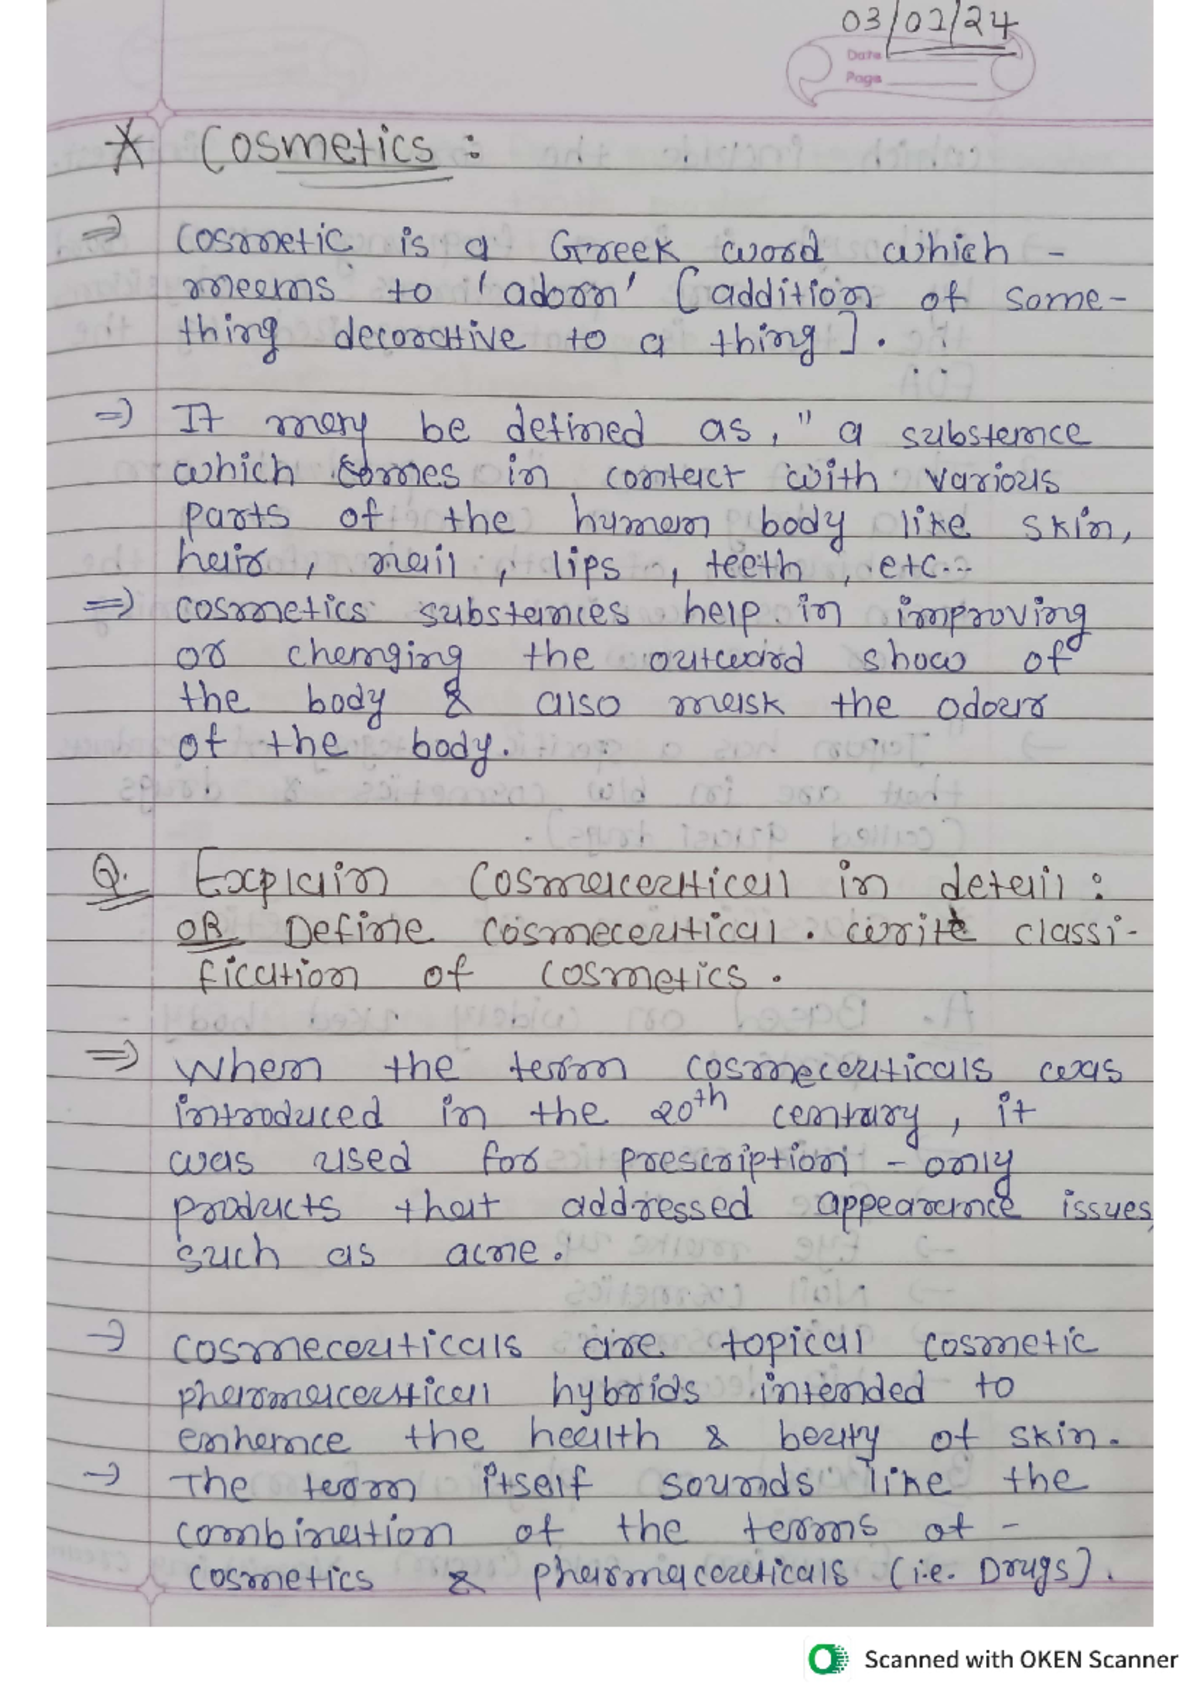 03/01/24
Date
Page
* Cosmetics :
⇒ Cosmetic is a Greek word which -
means to 'adorn' [addition of some-
thing decorative to a thing].
⇒ It may be defined as, " a substance
which comes in contact with various
parts of the human body like skin,
hair, nail, lips, teeth, etc...
⇒ cosmetics substances help in improving
or changing the outward show of
the body & also mask the odour
of the body.
Q. Explain Cosmaceutical in detail :
OR Define cosmeceutical. write classi-
fication of cosmetics.
⇒ When the term cosmeceuticals was
introduced in the 20th century, it
was used for prescription - only
products that addressed appearance issues,
such as acne.
→ Cosmeceuticals are topical cosmetic
pharmaceutical hybrids intended to
enhance the health & beauty of skin.
→ The term itself sounds like the
combination of the terms of -
cosmetics & pharmaceuticals (i.e. Drugs).
Scanned with OKEN Scanner